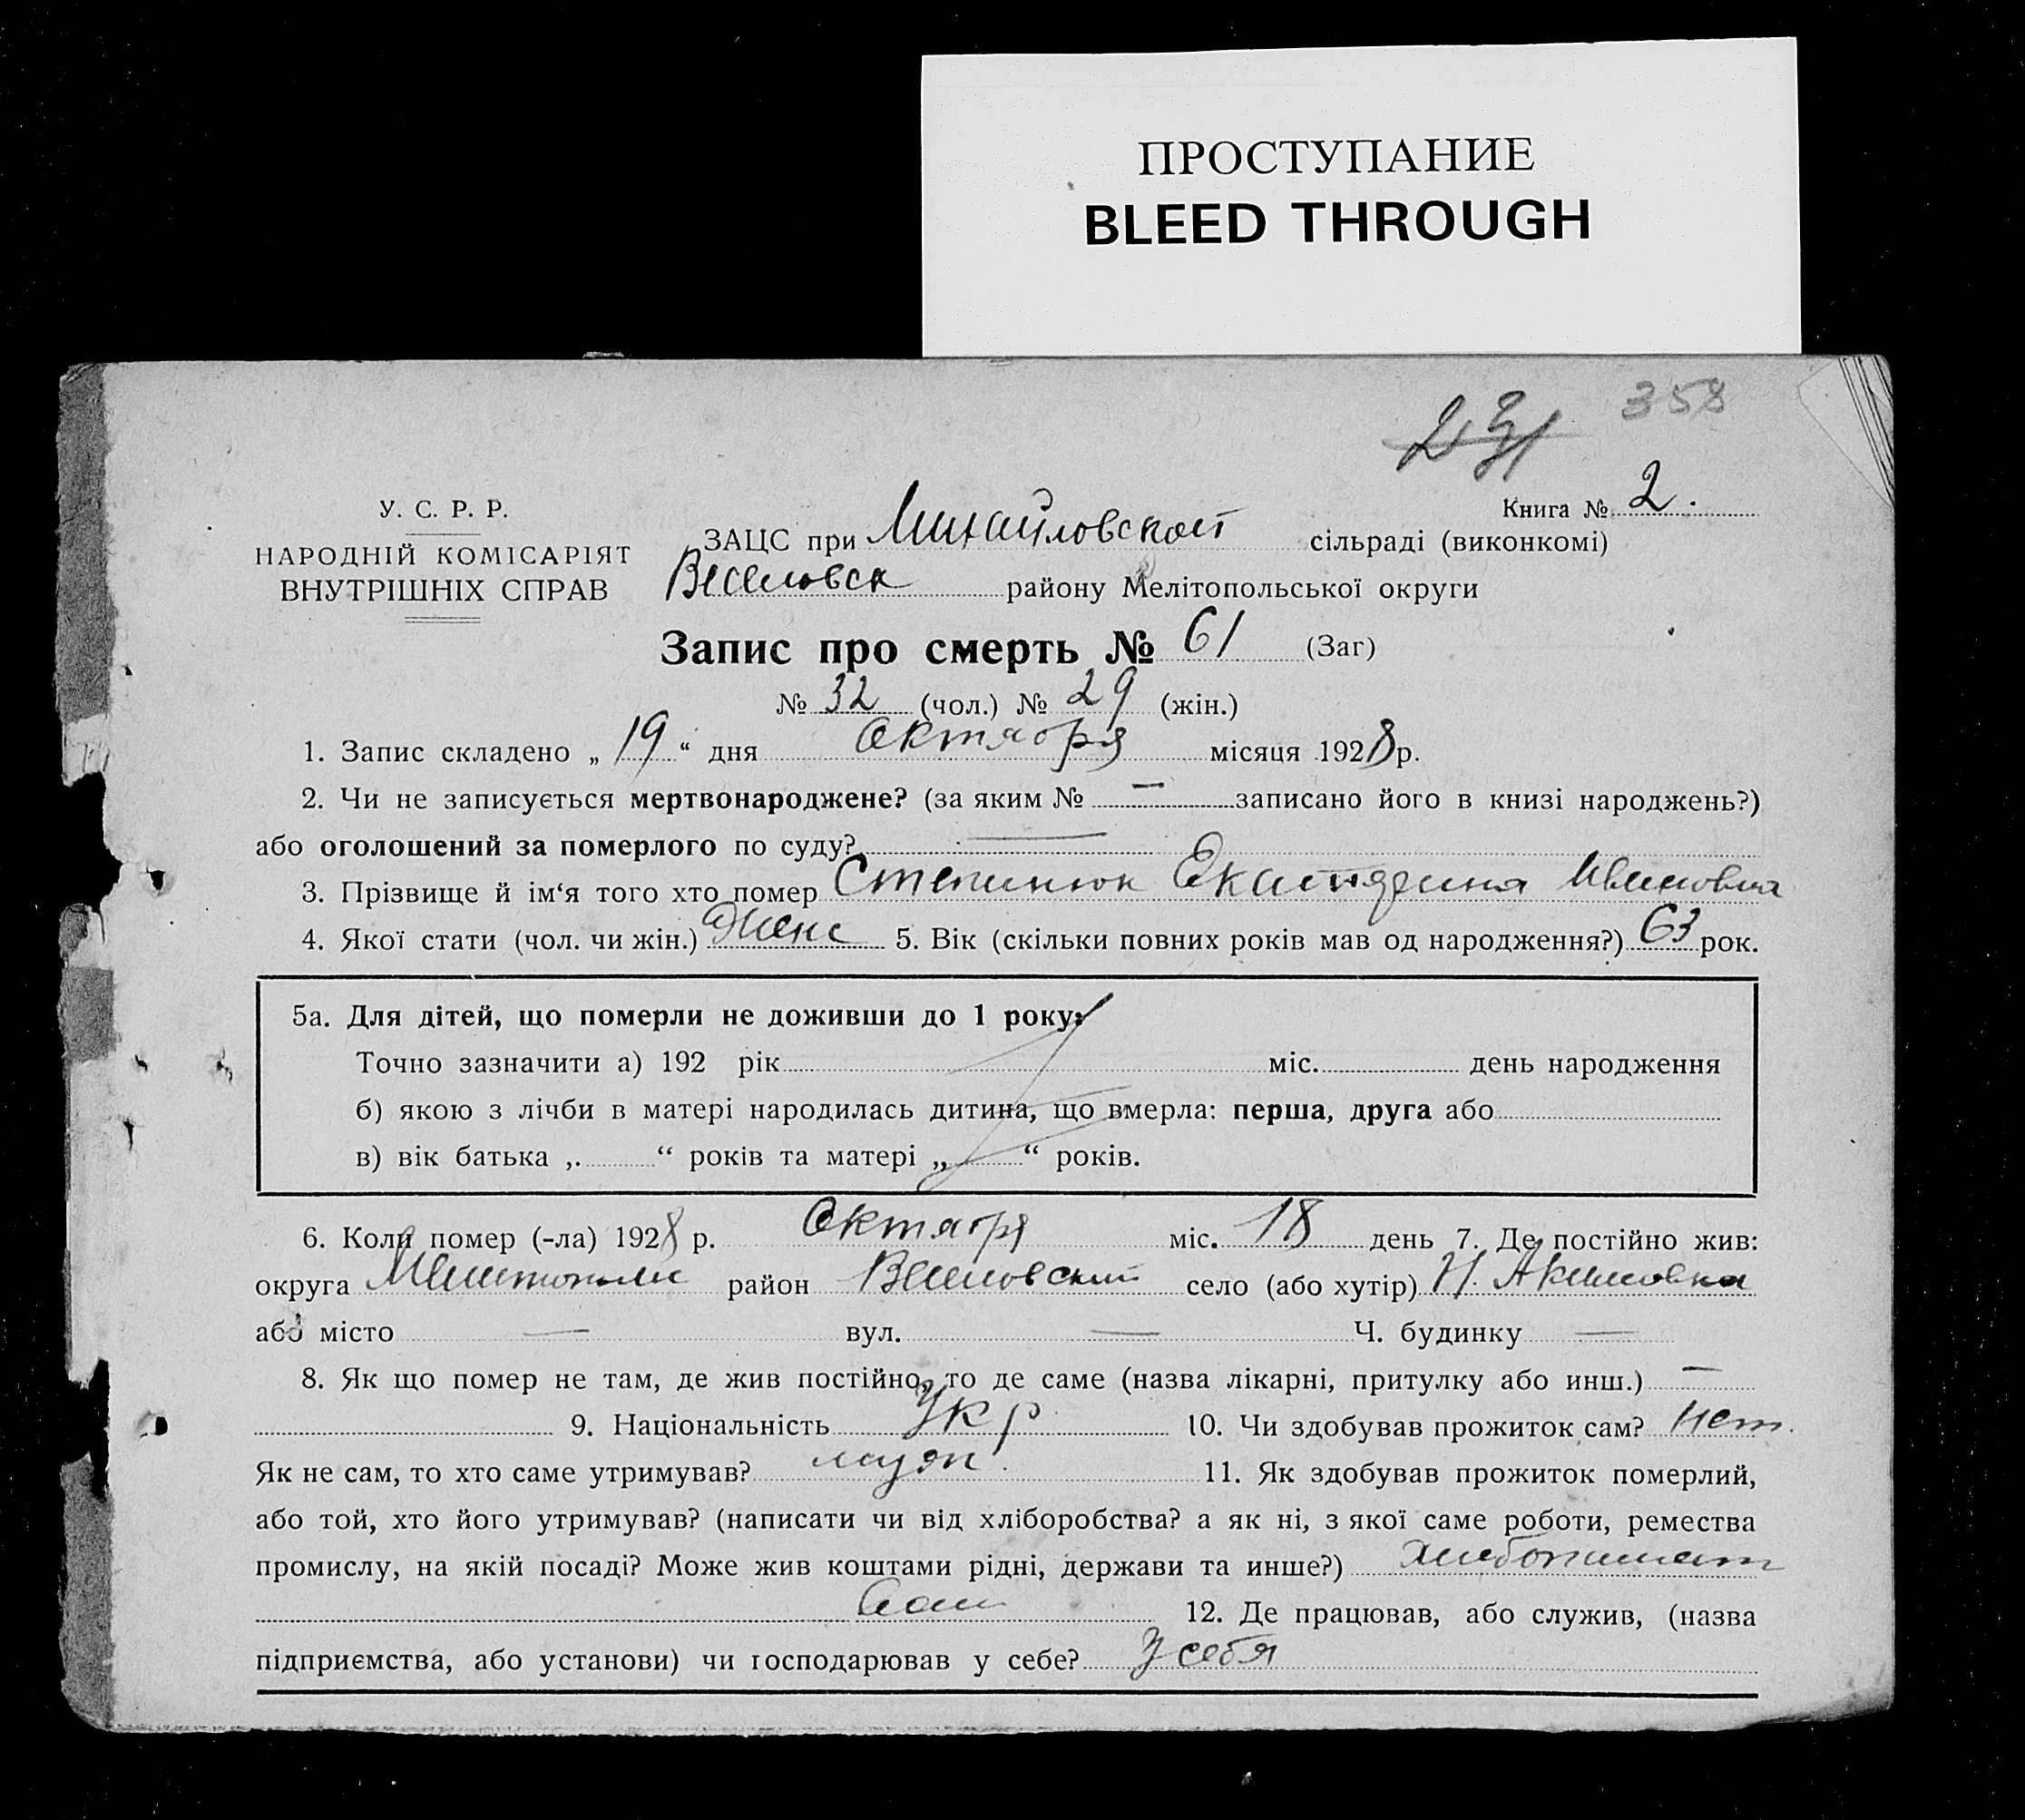 ПРОСТУПАНИЕ
BLEED THROUGH
358
231
Книга № 2.
У. С. Р. Р.
НАРОДНІЙ КОМІСАРІЯТ
ВНУТРІШНІХ СПРАВ
ЗАЦС при Михайловской сільраді (виконкомі)
Веселовск району Мелітопольської округи
Запис про смерть № 61 (Заг)
№ 32 (чол.) № 29 (жін.)
1. Запис складено „ 19 “ дня Октября місяця 1928 р.
2. Чи не записується мертвонароджене? (за яким № — записано його в книзі народжень?)
або оголошений за померлого по суду? —
3. Прізвище й ім‘я того хто помер Степинюк Екатерина Ивановна
4. Якої стати (чол. чи жін.) Женс 5. Вік (скільки повних років мав од народження?) 63 рок.
5а. Для дітей, що померли не доживши до 1 року:
Точно зазначити а) 192 рік міс. день народження
б) якою з лічби в матері народилась дитина, що вмерла: перша, друга або
в) вік батька „ “ років та матері „ “ років.
6. Коли помер (-ла) 1928 р. Октября міс. 18 день 7. Де постійно жив:
округа район Веселовский село (або хутір) Н.
або місто — вул. — Ч. будинку —
8. Як що помер не там, де жив постійно, то де саме (назва лікарні, притулку або инш.) —
9. Національність Укр 10. Чи здобував прожиток сам? нет.
Як не сам, то хто саме утримував? муж. 11. Як здобував прожиток померлий,
або той, хто його утримував? (написати чи від хліборобства? а як ні, з якої саме роботи, ремества
промислу, на якій посаді? Може жив коштами рідні, держави та инше?)
12. Де працював, або служив, (назва
підприємства, або установи) чи господарював у себе? У себя